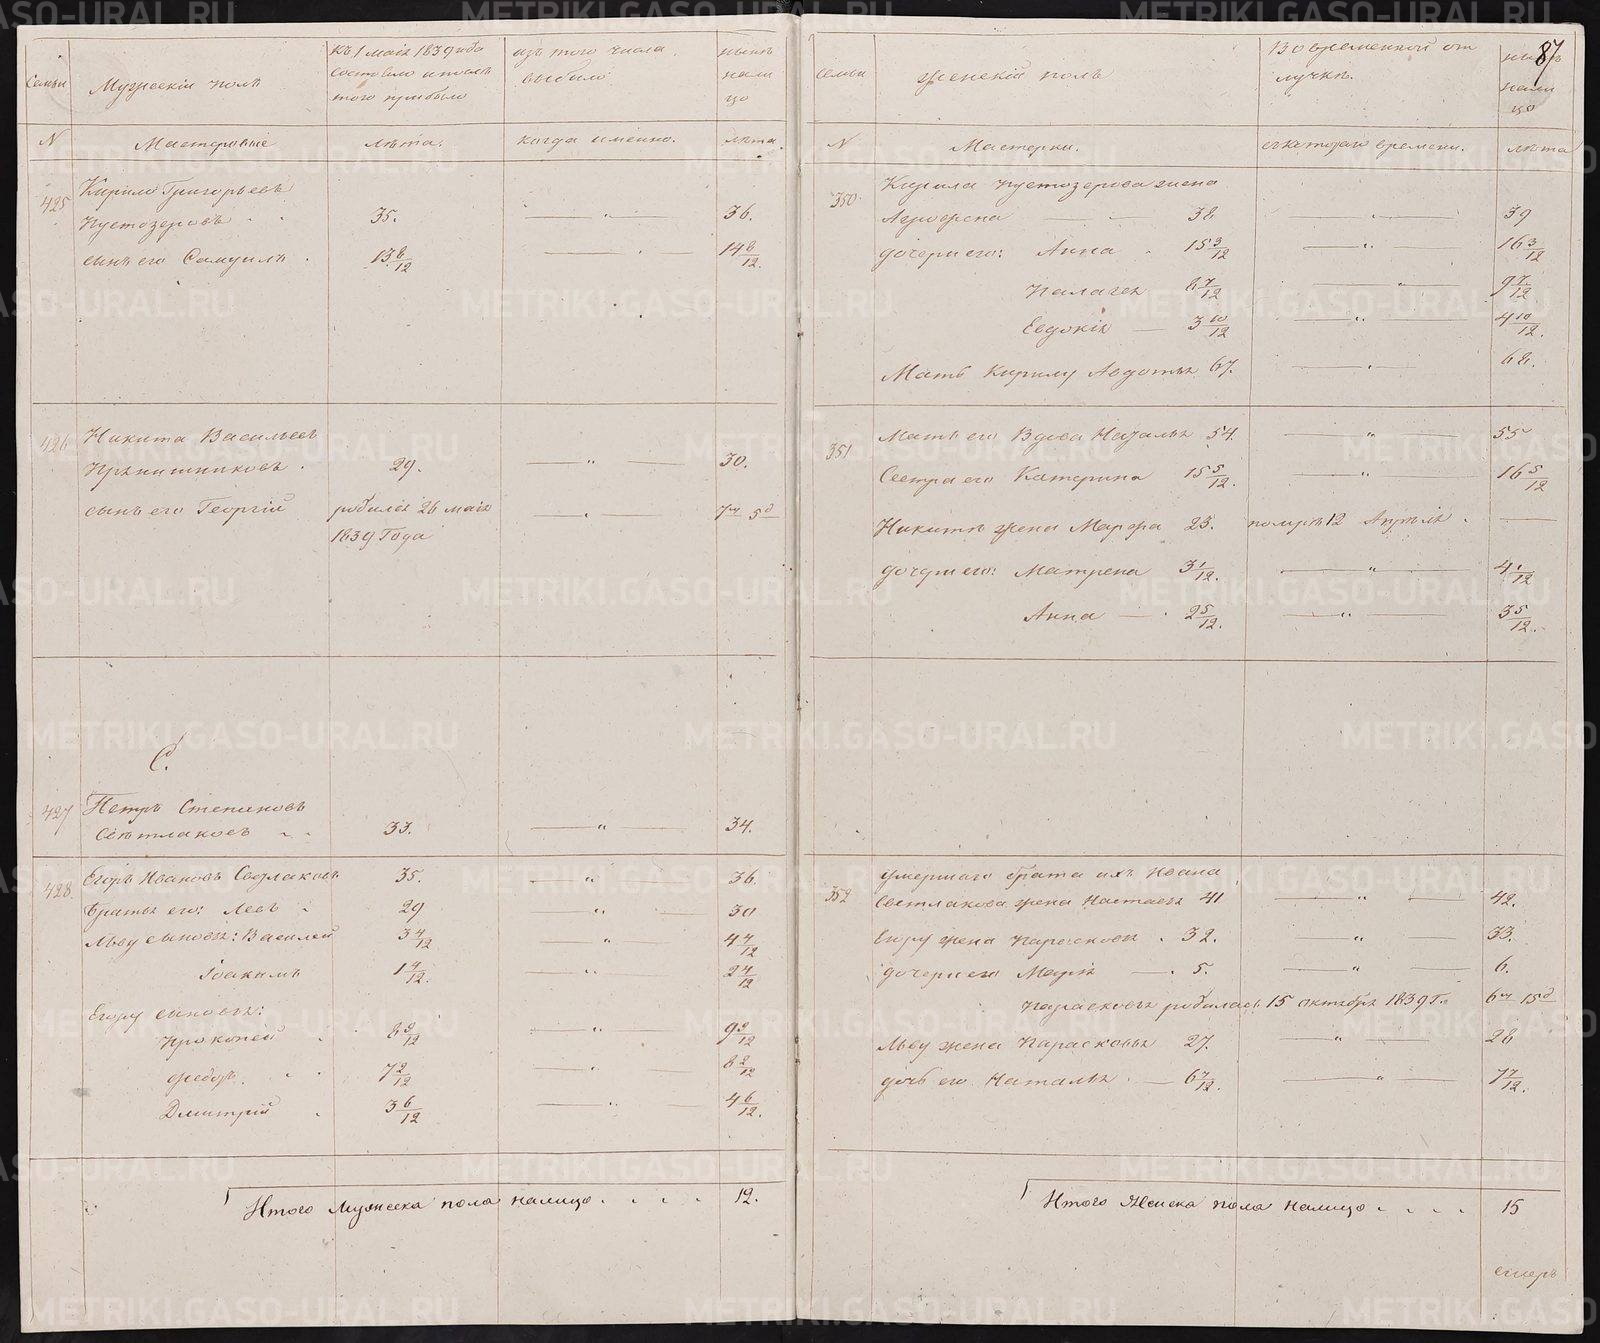 87
Семьи
Мужескій полъ
Къ 1 маія 1839 года
состояло и после
того прибыло
изъ того числа
выбыло
нынѣ
нали
цо
N
Мастеровые
лѣта.
когда именно.
лѣта
425
Кирило Григорьевъ
Пустозеровъ
35.
36.
сынъ его Самуилъ
13 8/12
14 8/12.
426
Никита Васильевъ
29.
30.
сынъ его Георгій
родился 26 маія
1839 Года
7м 5д
С.
427
Петръ Степановъ
Свѣтлаковъ
33.
34.
428
Егоръ Ивановъ Свѣтлаковъ
35.
36.
братья его: Левъ
29
30
Льву сыновья: Василей
3 4/12
4 4/12
Іоакимъ
1 4/12.
2 4/12
Егору сыновья:
Прокопей
8 9/12
9 9/12
Федоръ
7 2/12
8 2/12
Дмитрій
3 6/12
4 6/12.
Итого Мужеска пола налицо . . . . 12.
Семьи
женскій полъ
Во временной от
лучкѣ.
нынѣ
нали
цо
N
Мастерки.
съ котораго времени.
лѣта
350
Кирила Пустозерова жена
Агрофена
38
39
дочери его: Анна
15 3/12
16 3/12
Палагея
8 7/12
9 7/12
Евдокія
3 10/12
4 10/12.
Мать Кирилу Авдотья 67.
68.
351
Мать его Вдова Наталья 54.
55
Сестра его Катерина 15 5/12.
16 5/12
Никитѣ жена Марфа 25.
померла 12 Апрѣля
дочери его: Матрена 3 1/12.
4 1/12
Анна
2 5/12.
3 5/12.
352
умершаго брата ихъ Ивана
Светлакова жена Настасья 41
42.
Егору жена Парасковья . 32.
33.
дочери его Марія
5.
6.
Парасковья родилась 15 октября 1839 Г.
6м 15д
Льву жена Парасковья 27.
28
дочь его Наталья
6 7/12.
7 7/12.
Итого Женска пола налицо . . . . 15